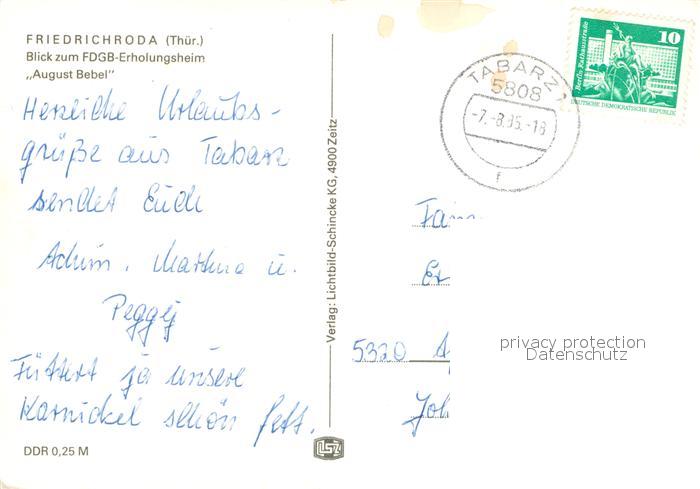 FRIEDRICHRODA (Thür.)
Blick zum FDGB-Erholungsheim
„August Bebel"
Herzliche Urlaubs-
grüße aus Tabarz
sendet Euch
Achim, Martina u.
Peggy
Füttert ja unsere
Karnickel schön fett.
DDR 0,25 M
Verlag: Lichtbild-Schincke KG, 4900 Zeitz
TABARZ 1
5808
-7.-8.85.-18
f
10
Berlin Rathausstraße
DEUTSCHE DEMOKRATISCHE REPUBLIK
Fam
5320 A
Joh
privacy protection
Datenschutz